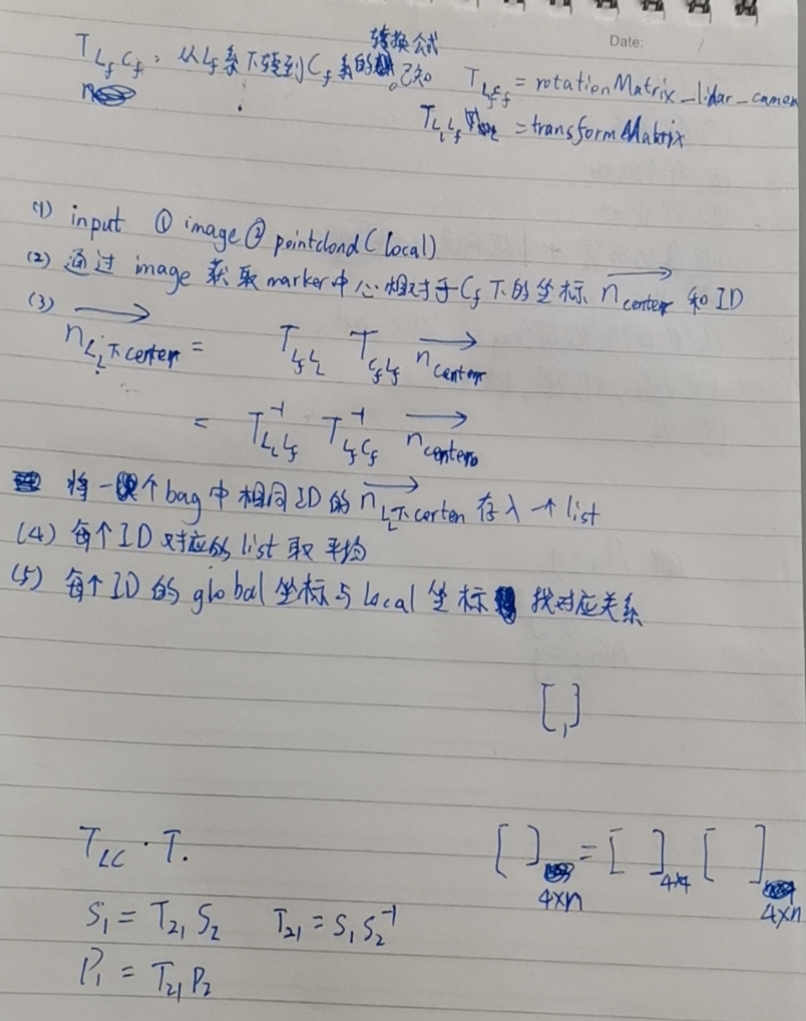 Date: /
转换公式
T_{L_f C_f}: 从L_f系下转到C_f系的 。已知 T_{L_f C_f} = rotationMatrix_lidar_camera
T_{L_i L_f} = transformMatrix
(1) input ① image ② pointcloud (local)
(2) 通过 image 获取 marker 中心相对于 C_f 下的坐标 \overrightarrow{n_{center}} 和 ID
(3) \overrightarrow{n_{L_i下center}} = T_{L_f L_i} T_{C_f L_f} \overrightarrow{n_{center}}
= T_{L_i L_f}^{-1} T_{L_f C_f}^{-1} \overrightarrow{n_{center}}
将一个 bag 中相同 ID 的 \overrightarrow{n_{L_i下center}} 存入一个 list
(4) 每个 ID 对应的 list 取平均
(5) 每个 ID 的 global 坐标与 local 坐标 找对应关系
[ , ]
T_{LC} · T.
[ ]_{4×n} = [ ]_{4×4} [ ]_{4×n}
S_1 = T_{21} S_2 T_{21} = S_1 S_2^{-1}
P_1 = T_{21} P_2